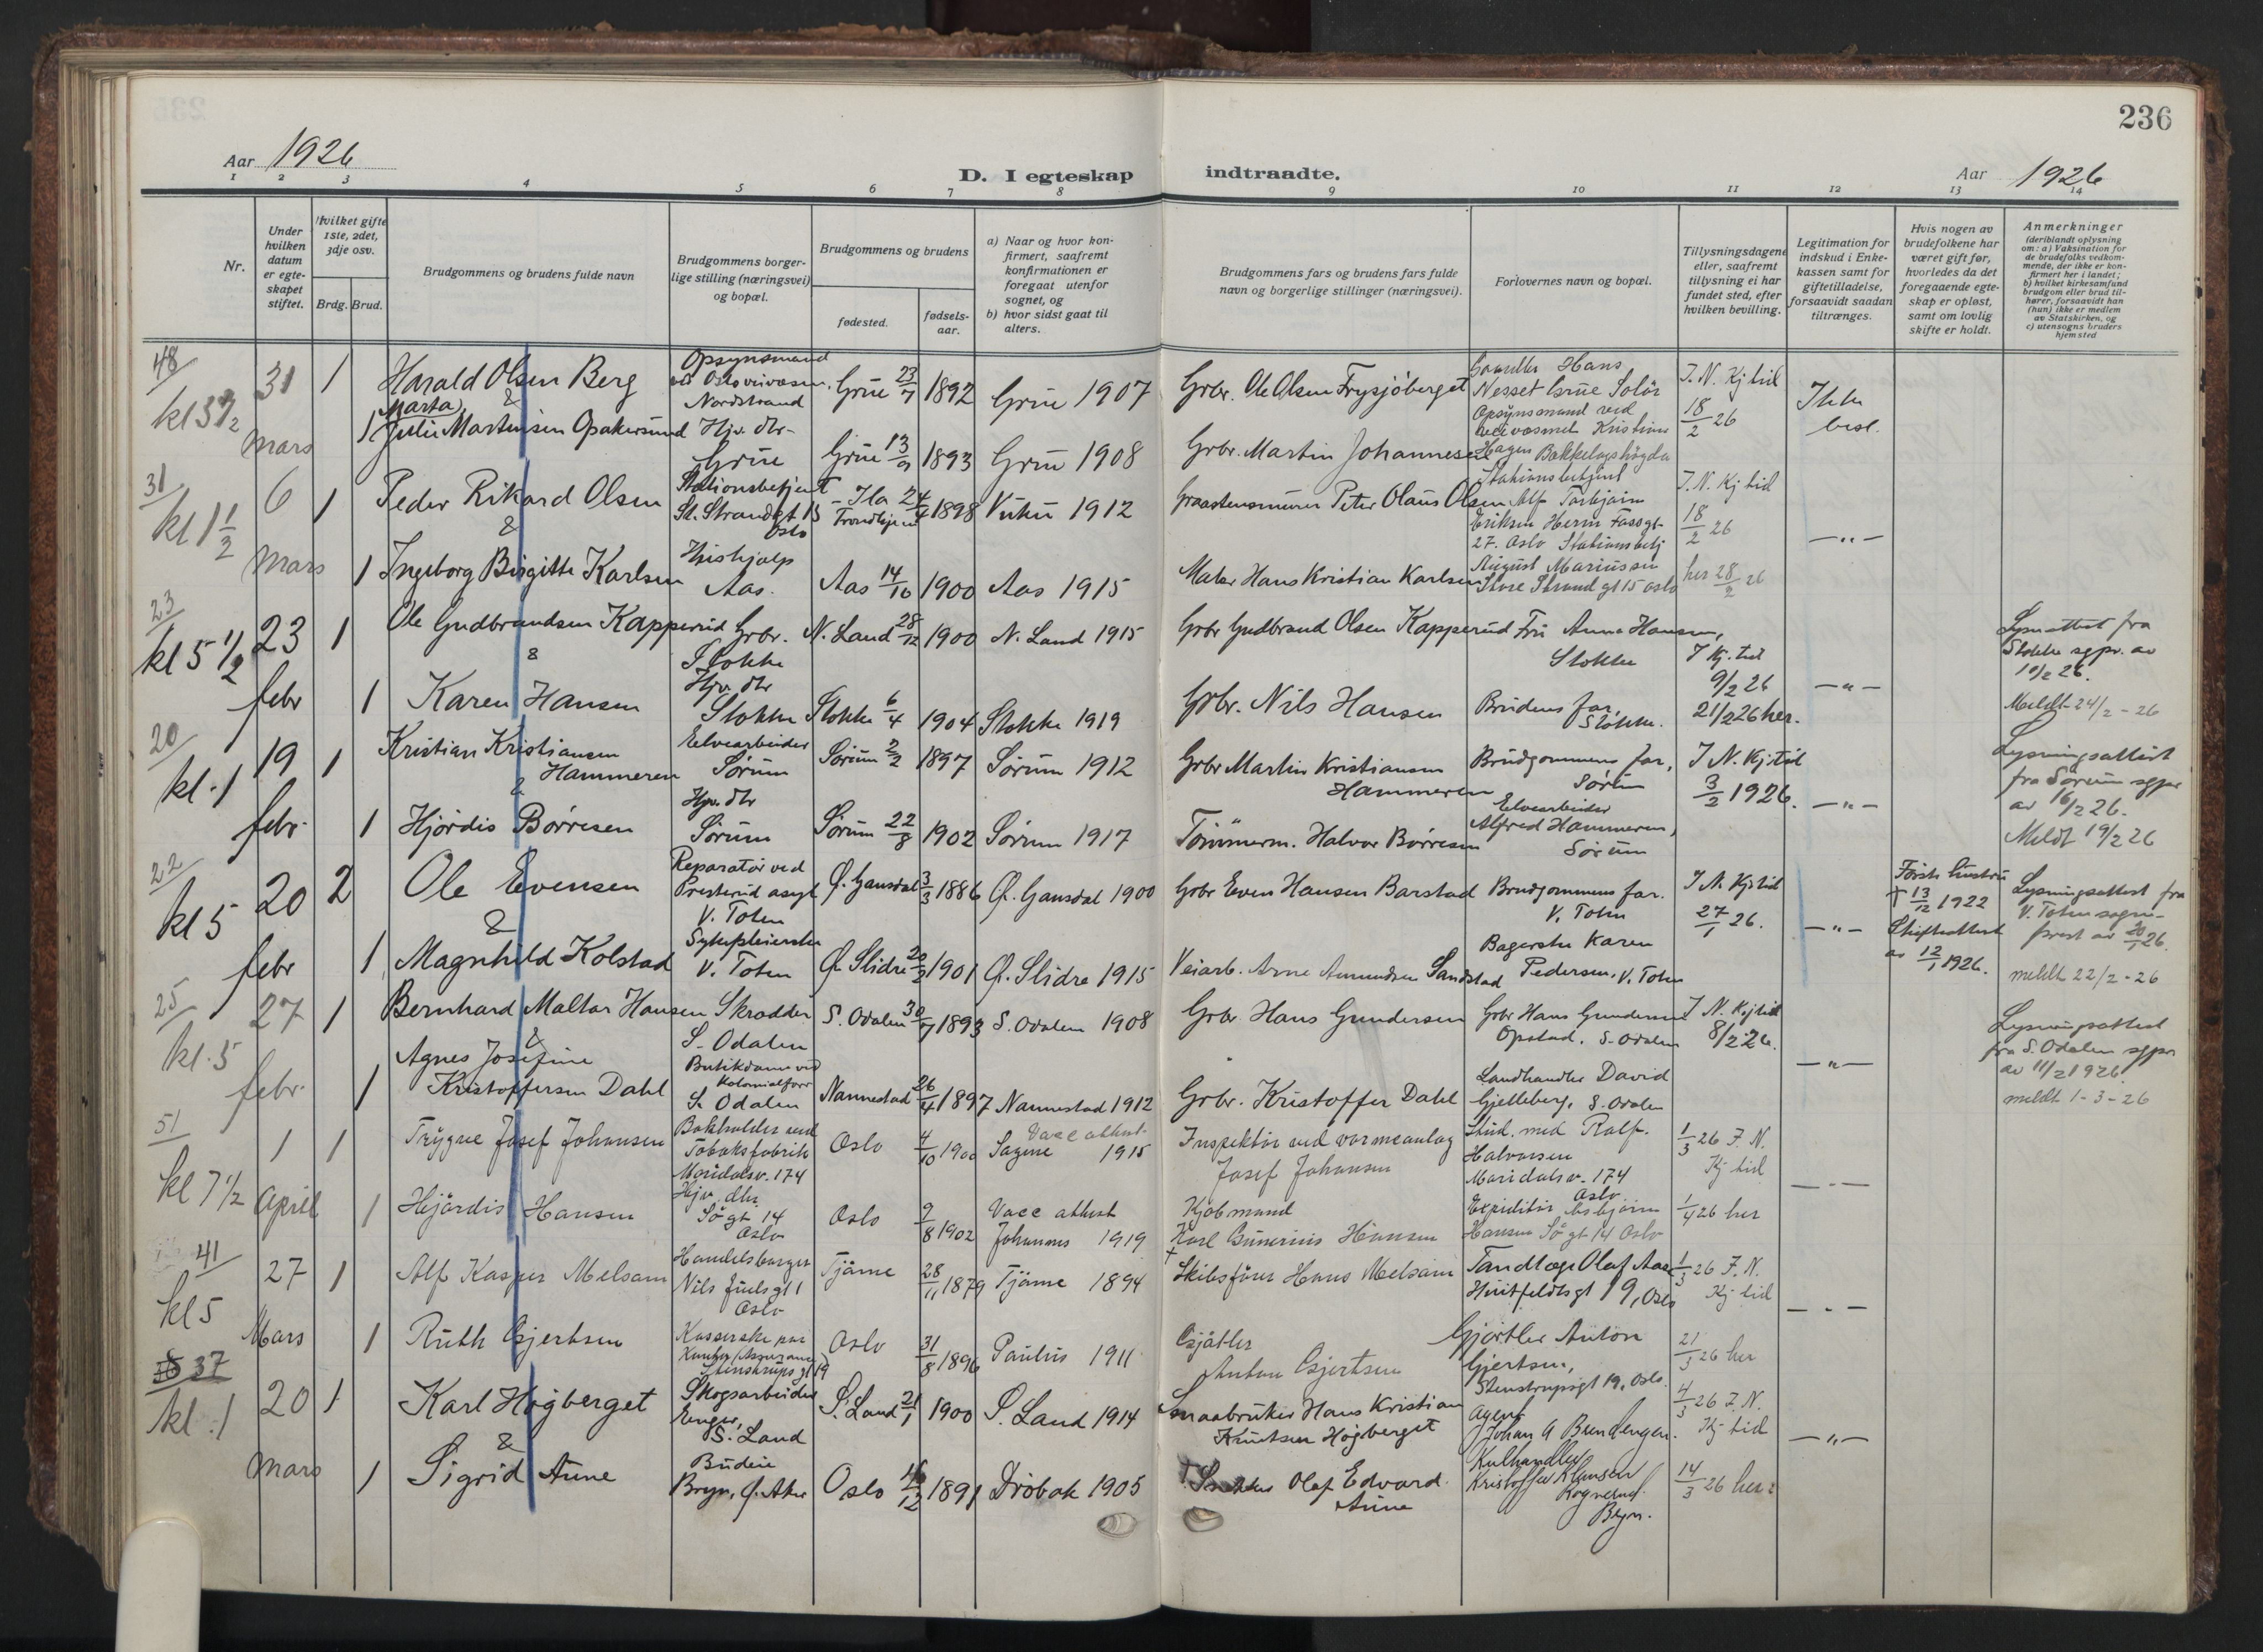 236
Aar 1926
D. I egteskap indtraadte.
Aar 1926
1 2 3 4 5 6 7 8 9 10 11 12 13 14
Nr.
Under hvilken datum er egteskapet stiftet.
Hvilket gifte 1ste, 2det, 3dje osv.
Brdg. Brud.
Brudgommens og brudens fulde navn
Brudgommens borgerlige stilling (næringsvei) og bopæl.
Brudgommens og brudens
fødested.
fødselsaar.
a) Naar og hvor konfirmert, saafremt konfirmationen er foregaat utenfor sognet, og
b) hvor sidst gaat til alters.
Brudgommens fars og brudens fars fulde navn og borgerlige stillinger (næringsvei).
Forlovernes navn og bopæl.
Tillysningsdagene eller, saafremt tillysning ei har fundet sted, efter hvilken bevilling.
Legitimation for indskud i Enkekassen samt for giftetilladelse, forsaavidt saadan tiltrænges.
Hvis nogen av brudefolkene har været gift før, hvorledes da det foregaaende egteskap er opløst, samt om lovlig skifte er holdt.
Anmerkninger
(deriblandt oplysning om: a) Vaksination for de brudefolks vedkommende, der ikke er konfirmert her i landet; b) hvilket kirkesamfund brudgom eller brud tilhører, forsaavidt han (hun) ikke er medlem av Statskirken, og c) utensogns bruders hjemsted
48 kl 3 1/2
31 Mars
1 Harald Olsen Berg
Opsynsmand ved Oslo veivæsen, Nordstrand
Grue 23/7 1892
Grue 1907
Grbr. Ole Olsen Frysjöberget
Hans Nesset Grue Solör
J. N. Kj tid 18/2 26
&
1 Marta Julie Martinsen Opakersund
Hjv. dtr Grue
Grue 13/9 1893
Grue 1908
Grbr. Martin Johannesen
Opsynsmand ved veivæsenet Kristian Hagen Bækkelagshögda
31 kl 1 1/2
6 Mars
1 Peder Rikard Olsen
Stationsbetjent St. Strandgt 15 Oslo
Ila Trondhjem 24/4 1898
Vuku 1912
Graastensmurer Peter Olaus Olsen
Stationsbetjent Alf Torbjörn Eriksen Herm Fossgt 27. Oslo
J. N. Kj tid 18/2 26
— " —
&
1 Ingeborg Birgitte Karlsen
Hushjælp Aas.
Aas 14/10 1900
Aas 1915
Maler Hans Kristian Karlsen
Stationsbetj August Mariussen Store Strandgt 15 Oslo
her 28/2 26
23 kl 5 1/2
23 febr
1 Ole Gudbrandsen Kapperud
Grbr. Stokke
N. Land 28/12 1900
N. Land 1915
Grbr Gudbrand Olsen Kapperud
Fru Anna Hansen, Stokke
J Kj. tid 9/2 26
&
1 Karen Hansen
Hjv. dtr Stokke
Stokke 6/4 1904
Stokke 1919
Grbr. Nils Hansen
Brudens far, Stokke.
21/2 26 her.
— " —
Lysnattest fra Stokke sgpr. av 10/2 26.
Meldt 24/2 - 26
20 kl. 1
19 febr.
1 Kristian Kristiansen Hammeren
Elvearbeider Sørum
Sørum 2/2 1897
Sørum 1912
Grbr Martin Kristiansen Hammeren
Brudgommens far, Sørum
J N. Kj. tid 3/2 1926.
&
1 Hjördis Börresen
Hjv. dtr Sørum
Sørum 22/8 1902
Sørum 1917
Tömmerm. Halvor Börresen
Elvearbeider Alfred Hammeren, Sørum
— " —
Lysningsattest fra Sørum sgpr av 16/2 26.
Meldt 19/2 26
22 kl 5
20 febr
2 Ole Evensen
Reparatör ved Presterud asyl V. Toten
Ö. Gausdal 3/3 1886
Ö. Gausdal 1900
Grbr Even Hansen Barstad
Brudgommens far. V. Toten
J N. Kj. tid 27/1 26.
— " —
Första hustru † 13/12 1922 Skifteattest av 12/1 1926.
Lysningsattest fra V. Toten sogneprest av 20/1 26.
meldt 22/2 - 26
&
1 Magnhild Kolstad
Sykepleierske V. Toten
Ö. Slidre 20/2 1901
Ö. Slidre 1915
Veiarb. Arne Amundsen Sandstad
Bagerske Karen Pedersen, V. Toten
25 kl. 5
27 febr.
1 Bernhard Maltar Hansen
Skrædder S. Odalen
S. Odalen 30/7 1893
S. Odalen 1908
Grbr. Hans Gundersen
Grbr Hans Gundersen Opstad, S. Odalen
J N. Kj. tid 8/2 26.
&
1 Agnes Josefine Kristoffersen Dahl
Butikdame ved Kolonialforr S. Odalen
Nannestad 26/4 1897
Nannestad 1912
Grbr. Kristoffer Dahl
Landhandler David Gjelleberg, S. Odalen
— " —
Lysningsattest fra S. Odalen sgpr av 11/2 1926
meldt 1-3-26
51 kl 7 1/2
1 April
1 Trygve Josef Johansen
Bokholder ved Tobaksfabrik Maridalsv. 174
Oslo 4/10 1900
Vacc attest. Sagene 1915
Inspektör ved varmeanlæg Josef Johansen
Stud. med Ralf Halvorsen Maridalsv. 174 Oslo
1/3 26 J. N. Kj tid
1 Hjördis Hansen
Hjv. dtr. Sögt 14 Oslo
Oslo 9/8 1902
Vacc attest Johannes 1919
Kjöbmand Karl Gunerius Hansen
Expeditör Asbjörn Hansen Sögt 14 Oslo
1/4 26 her
— " —
41 kl 5
27 Mars
1 Alf Kasper Melsom
Handelsborger Nils Juels gt 1 Oslo
Tjöme 28/11 1879
Tjöme 1894
† Skibsförer Hans Melsom
Tandlæge Olaf Aas Huitfeldtsgt 19, Oslo
1/3 26 J. N. Kj tid
— " —
1 Ruth Gjertsen
Kasserske Stenstrups gt 19
Oslo 31/8 1896
Paulus 1911
Gjörtler Anton Gjertsen
Gjörtler Anton Gjertsen, Stenstrupsgt 19, Oslo.
21/3 26 her
37 kl. 1
20 Mars
1 Karl Høgberget
Skogsarbeider Enger, S. Land
S. Land 21/1 1900
S. Land 1914
Smaabruker Hans Kristian Knutsen Høgberget
Agent Johan A Brendengen.
4/3 26 J. N. Kj tid
— " —
&
1 Sigrid Aune
Budeie Bryn, Ö. Aker
Oslo 1891
Drøbak 1905
† Olaf Edvard Aune
Kulhandler Kristoffer Klausen Bryn.
14/3 26 her